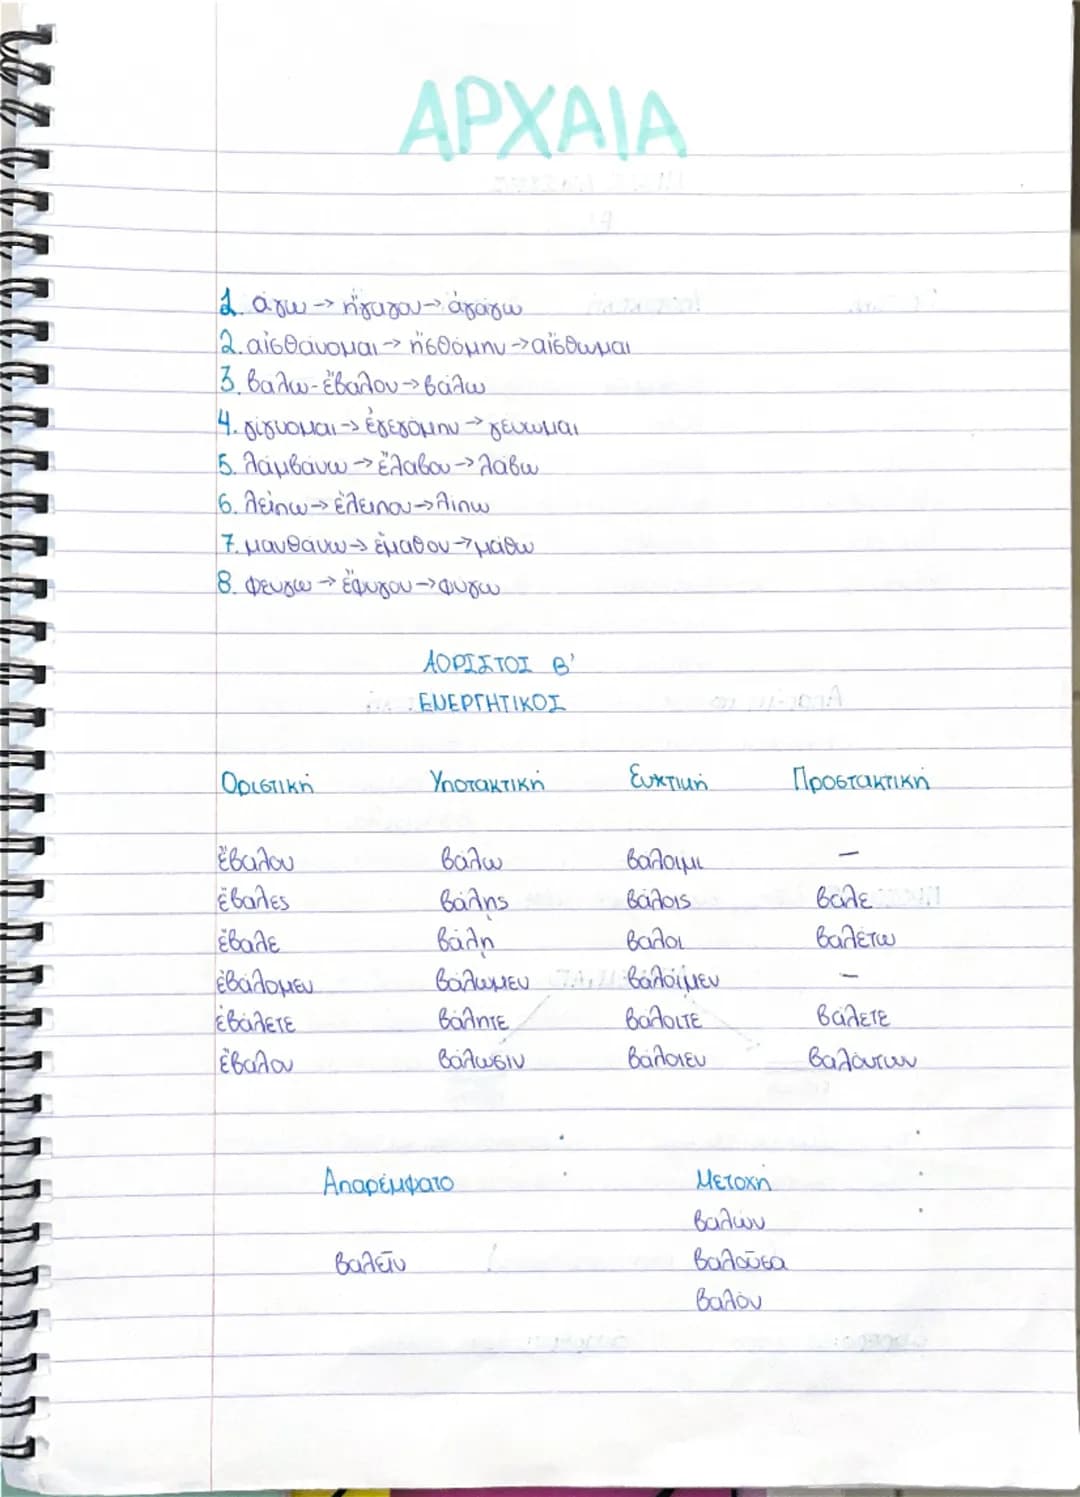 ΑΡΧΑΙΑ
1. άγω → ήγαγον → αγάγω
2. αισθάνομαι → ησθόμην → αίσθωμαι
3. βαλω - έβαλον → βάλω
4. γίγνομαι → εγεγόμην → γενωμαι
5. λαμβάνω → έλαβον → λάβω
6. λείπω → έλειπον → λίπω
7. μανθάνω → έμαθον → μάθω
8. φευγω → έφυγον → φυγω
ΑΟΡΙΣΤΟΙ Β'
ΕΝΕΡΓΗΤΙΚΟΙ
Οριστική Υποτακτική Ευκτική Προστακτική
έβαλον βάλω βάλοιμι –
έβαλες βάλης βάλοις βάλε
έβαλε βάλη βάλοι βαλέτω
εβάλομεν βάλωμεν βάλοιμεν –
εβάλετε βάλητε βάλοιτε βάλετε
έβαλον βάλωσιν βάλοιεν βαλόντων
Απαρέμφατο Μετοχή
βαλών
βαλεῖν βαλοῦσα
βαλόν